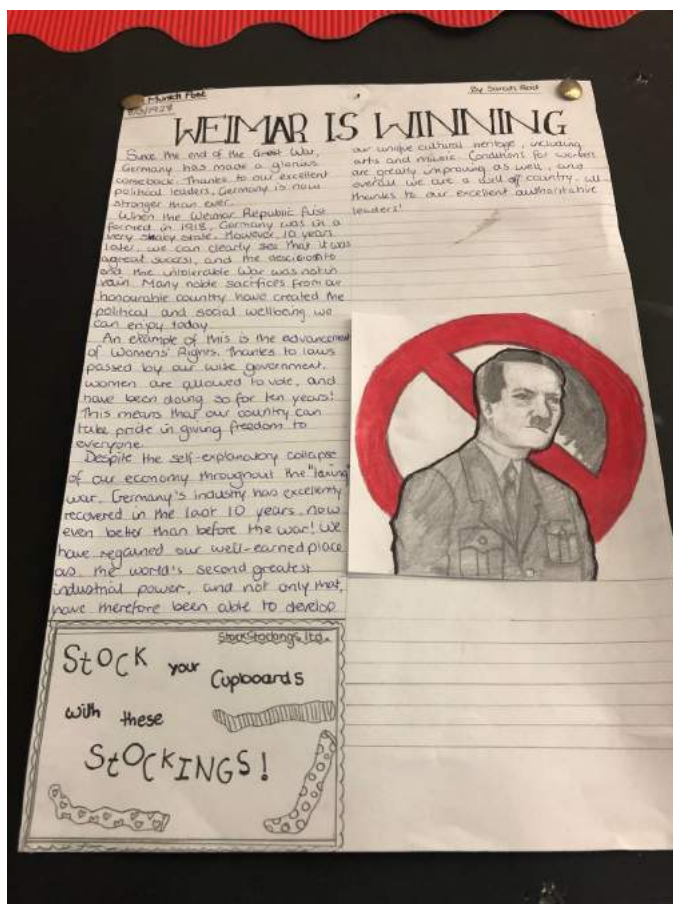 Munich Post
By Sarah
WEIMAR IS WINNING
Since the end of the Great War,
Germany has made a glorious
comeback. Thanks to our excellent
political leaders, Germany is now
stronger than ever.
When the Weimar Republic first
formed in 1918, Germany was in a
very shaky state. However, 10 years
later, we can clearly see that it was
a great success, and the descision to
end the intolerable War was not in
vain. Many noble sacrifices from our
honourable country have created the
political and social wellbeing we
can enjoy today.
An example of this is the advancement
of Womens' Rights. Thanks to laws
passed by our wise government,
women are allowed to vote, and
have been doing so for ten years!
This means that our country can
take pride in giving freedom to
everyone.
Despite the self-explanatory collapse
of our economy throughout the
war, Germany's industry has excellently
recovered in the last 10 years, now
even better than before the war! We
have regained our well-earned place
as the world's second greatest
industrial power, and not only that,
have therefore been able to develop
our unique cultural heritage, including
arts and music. Conditions for workers
are greatly improving as well, and
overall we are a well off country - all
thanks to our excellent authoritative
leaders!
StockStockings ltd.
STOCK your
Cupboards
with these
STOCKINGS!